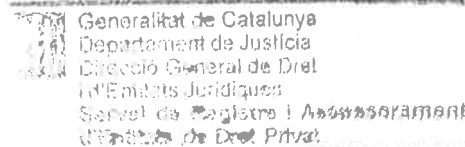 Generalitat de Catalunya
Departament de Justícia
Direcció General de Dret
i d'Entitats Jurídiques
Servei de Registre i Assessorament
d'Entitats de Dret Privat